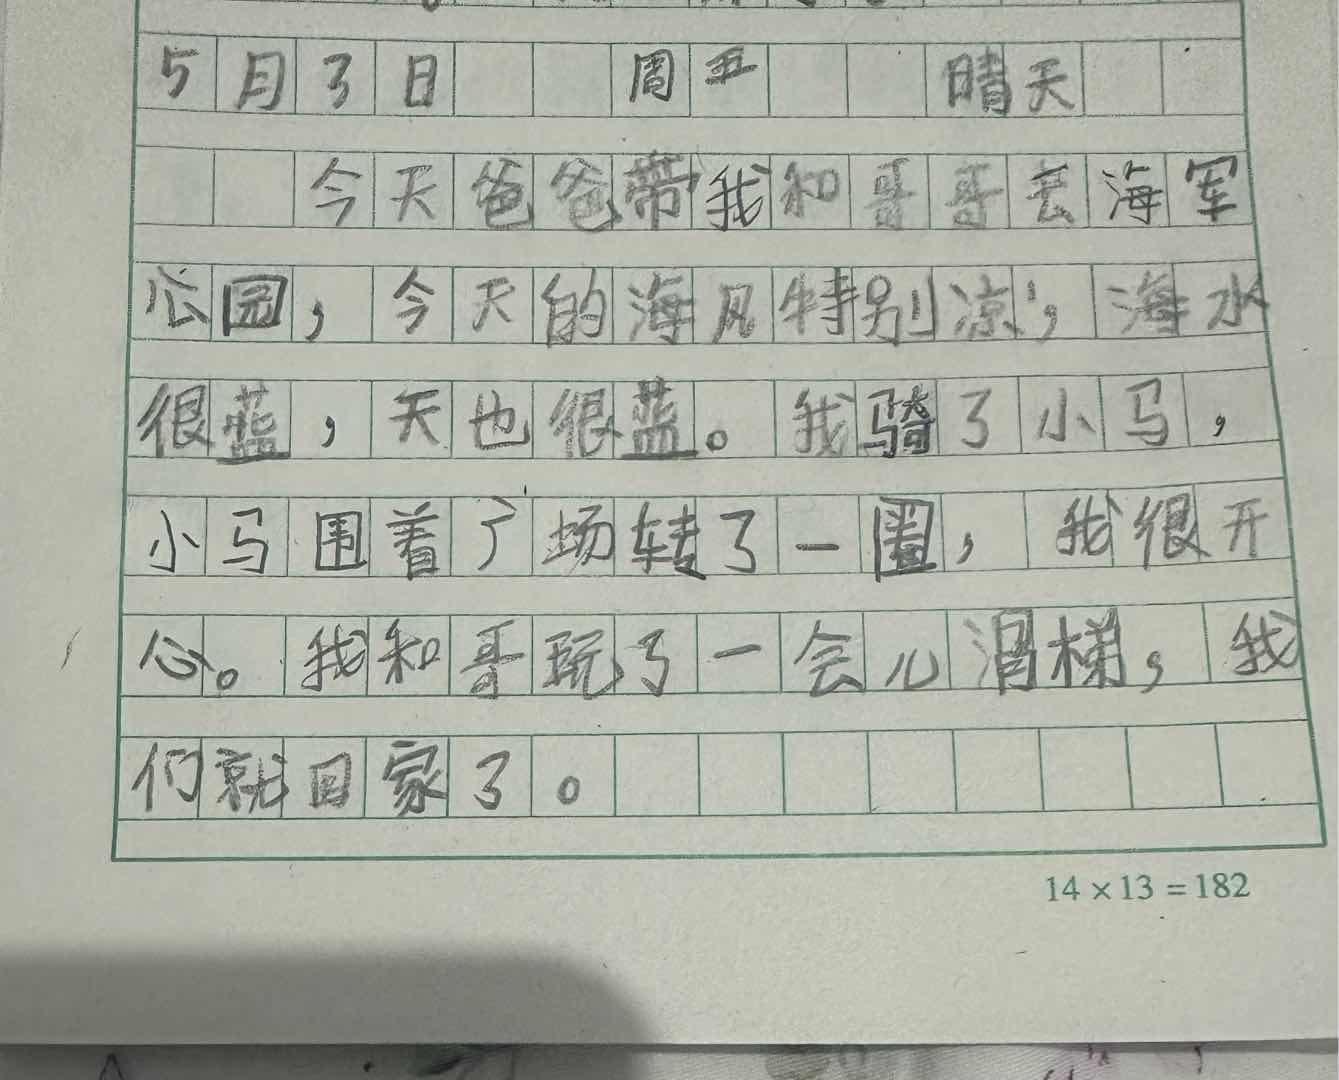 5月3日 周五 晴天
今天爸爸带我和哥哥去海军
公园，今天的海风特别凉，海水
很蓝，天也很蓝。我骑了小马，
小马围着广场转了一圈，我很开
心。我和哥玩了一会儿滑梯，我
们就回家了。
14×13=182